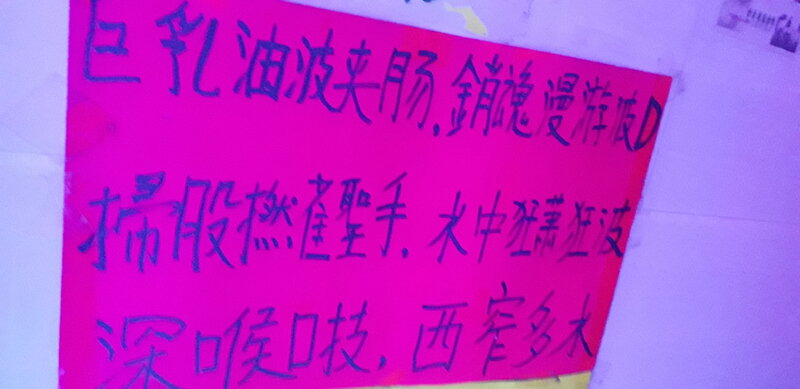 巨乳油波夹肠.銷魂漫游波D
掃股撚雀聖手.水中狂蕭狂波
深喉口技.西窄多水